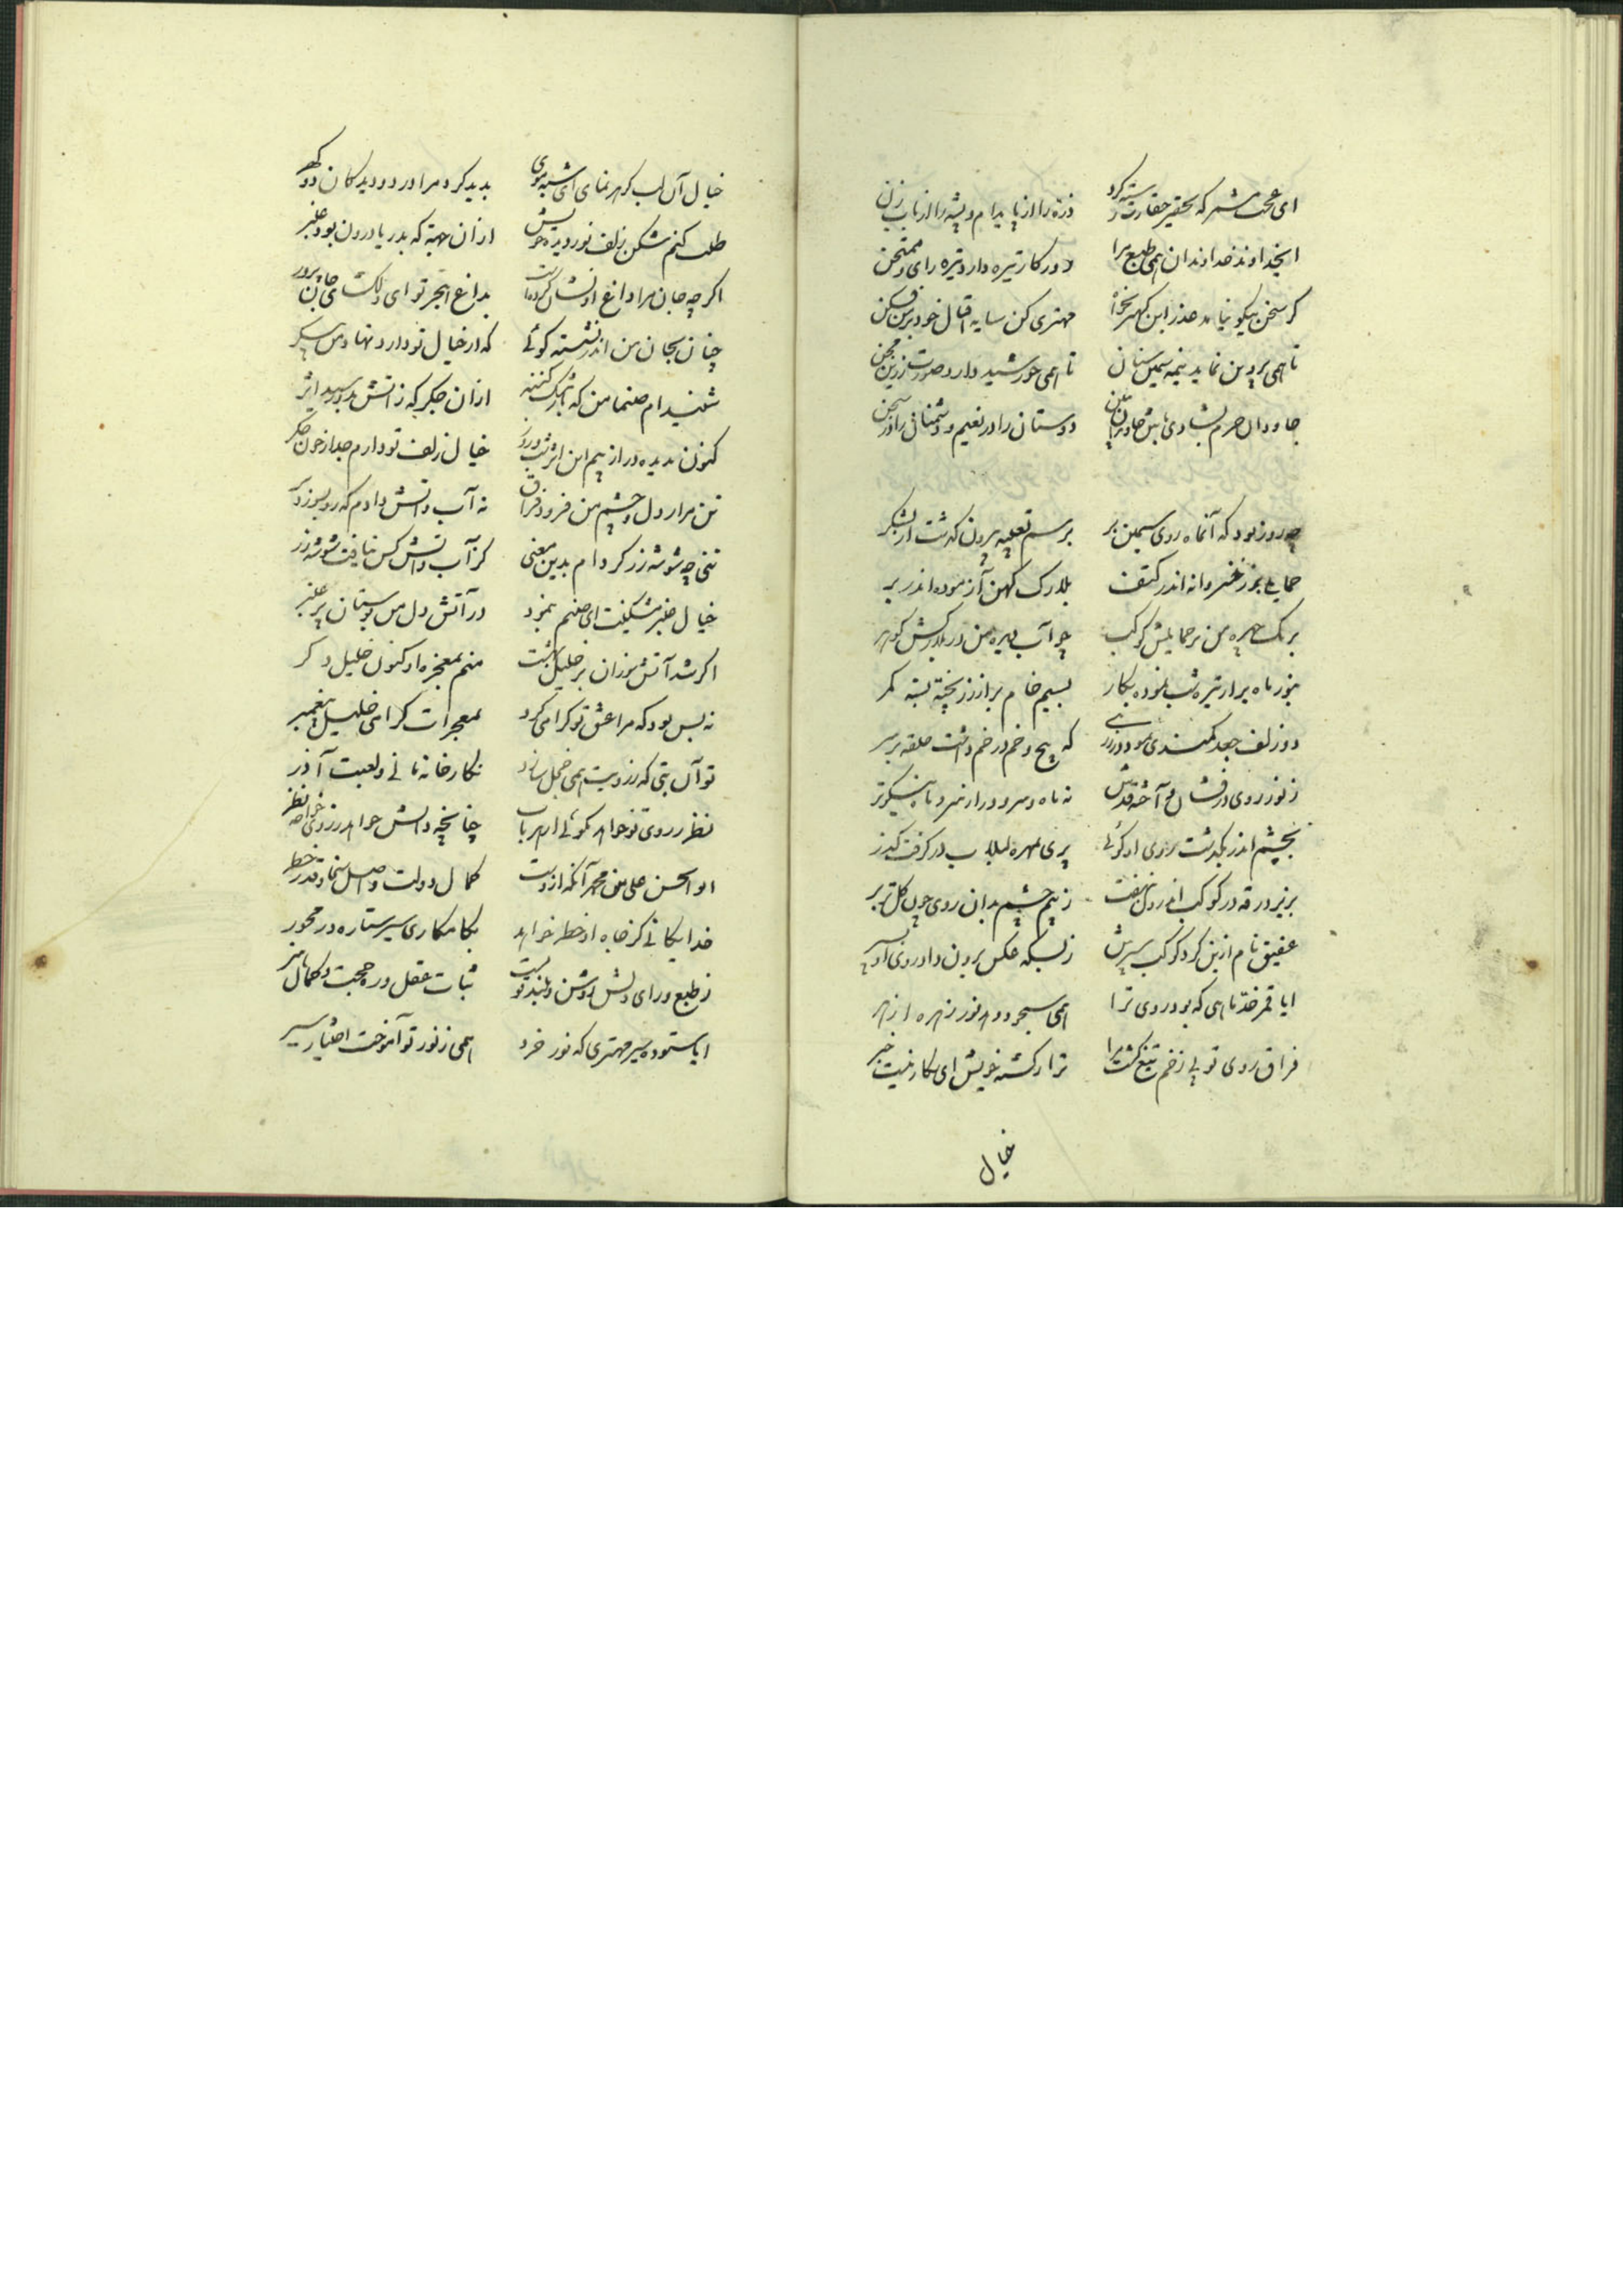 ای عجب مشمر که تحقیر حقارت کرد
ذره را از پا بدام و پشه را از باب زن
ایخداوند خداوندان همی طبع مرا
دور کار تیره دارد تیره رای و ممتحن
گر سخن نیکو نیاید عذر این کهتر بخواه
مهتری کن سایه اقبال خود بر من فکن
تا همی پروین نماید نیمه سیمین سنان
تا همی خورشید دارد صورت زرین مجن
جاودان خرم بشادی باش جاویدان
دوستان را در نعیم و دشمنان را در محن
چه روز بود که آنماه روی سیمین بر
برسم تعبیه بیرون گذشت از لشکر
حمایلی بزر خسروانه اندر کتف
بلارک کهن آزموده اندر بر
برنگ چهره من بر حمایلش کوکب
چو آب دیده من در بلارکش گوهر
بنور ماه برابر تیره شب نموده نگار
بسیم خام بر از زر پخته بسته کمر
دو زلف جعد کمندی نمود
که پیچ و خم در خم داشت حلقه بر سر
ز نور روی درفشان و آخته قدش
نه ماه و سرو و را از سرو و ماه نیکوتر
بچشم اندر بگذشت روی او گوئی
پری بهره بلبلاب در گرفت گذر
بزیر ورقه در کوکب اندرون بنهفت
ز بیم چشم بدان روی چون گل تر بر
عقیق نام ازین کرد کوکب سپرش
ز بسکه عکس برون داد روی او
ایا قمر خد ماهی که بود روی ترا
همی سجود دهد نور زهره ازهر
فراق روی تو بی زخم تیغ کشت مرا
ترا ز کشته خویش ای نگار نیست خبر
خیال
خیال آن لب گهر نمای ای شبه موی
بدید کرد مرا در دو دیدگان دو گهر
طلب کنم شکن زلف تو ز دیده خویش
ازان جهة که بدریا درون بود عنبر
اگرچه جان مرا داغ او نشان کرده است
بداغ هجر تو ای دلگشای جان پرور
چنان بجان من اندر نشسته گوئی
که از خیال تو دارد نهاد من پیکر
شنیده ام صنما من که مشک کنند
ازان جگر که ز آتش بدو رسید اثر
کنون بدیده در از بیم این اثر شب و روز
خیال زلف تو دارم جدا ز خون جگر
تن مرا ز دل و چشم من فروز فراق
نه آب و آتش دادم که روی بسوزد
تنی چو شوشه زر کرده ام بدین معنی
کز آب و آتش کس نیافت شوشه زر
خیال عنبر مشکینت ای صنم بنمود
در آتش دل من بوستان پر عنبر
اگر شد آتش سوزان بر خلیل بهشت
منم بمعجزه او کنون خلیل دگر
نه بس بود که مرا عشق تو گرامی کرد
بمعجزات گرامی خلیل پیغمبر
تو آن بتی که ز رویت همی خجل ماند
نگارخانه مانی و لعبت آذر
نظر ز روی تو خواهد نکوئی اهر باب
چنانچه دانش خواهد ز روی خواجه نظر
ابو الحسن علی بن محمد آنکه ازوست
کمال دولت و اصل سخا و قدر و خطر
خدایگانی کز جاه او خطر خواهد
بکامکاری سیر ستاره در محور
ز طبع و رای و دلش روشن و بلند قویست
ثبات عقل و ره حجت و کمال هنر
ایا ستوده سیر مهتری که نور خرد
همی ز نور تو آموخت اختیار سیر